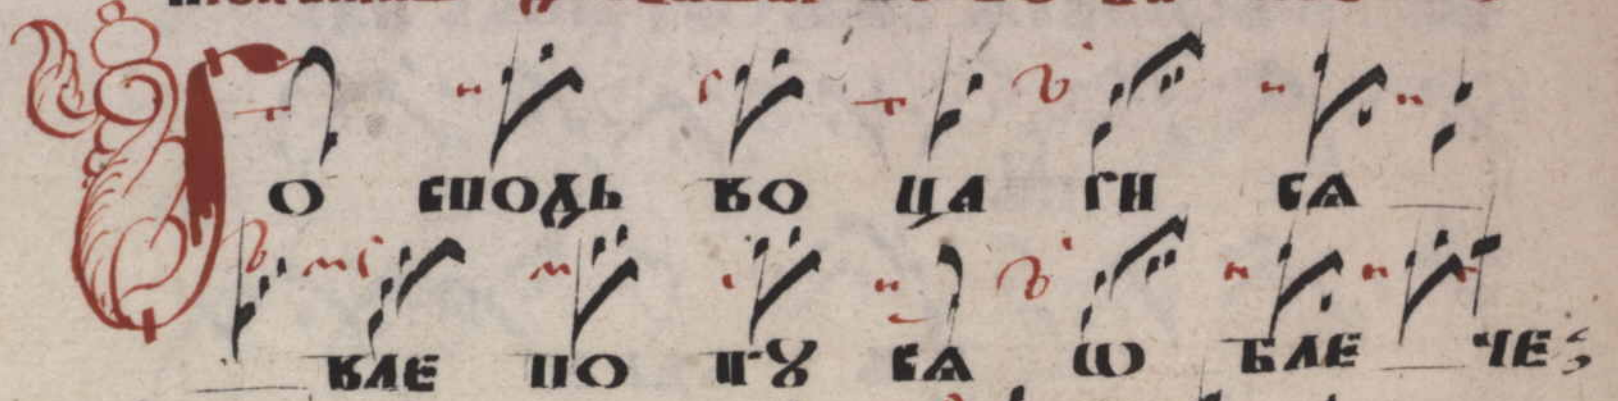 Го сподь во ца ги ся
вле по ту ся ѡ бле че